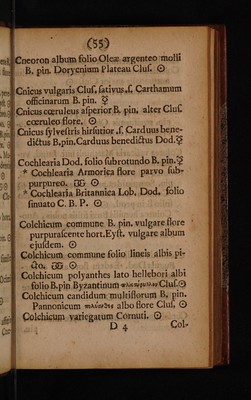 (55)
Cneoron album folio Oleæ argenteo molli
B. pin. Dorycnium Plateau Cluſ. ☉
Cnicus vulgaris Cluſ. ſativus,ſ. Carthamum
officinarum B. pin. ☿
Cnicus cœruleus aſperior B. pin. alter Cluſ.
cœruleo flore. ☉
Cnicus ſylveſtris hirſutior ,ſ. Carduus bene-
dictus B.pin.Carduus benedictus Dod.☿
Cochlearia Dod. folio ſubrotundo B. pin.☿
* Cochlearia Armorica flore parvo ſub-
purpureo. ☉
* Cochlearia Britannica Lob. Dod. folio
ſinuato C. B. P. ☉
Colchicum commune B. pin. vulgare flore
purpuraſcente hort.Eyſt. vulgare album
ejuſdem. ☉
Colchicum commune folio lineis albis pi-
cto. ☉
Colchicum polyanthes lato hellebori albi
folio B.pin Byzantinum Cluſ.☉
Colchicum candidum multiflorum B. pin.
Pannonicum albo flore Cluſ. ☉
Colchicum variegatum Cornuti. ☉
D 4 Col-